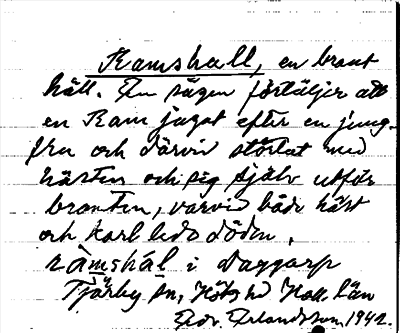 Ramshall, en brant
häll. En sägen förtäljer att
en Ram jagat efter en jung-
fru och därvid störtat med
hästen och sig själv utför
branten, varvid både häst
och karl ledo döden.
ràmshál i Daggarp
Tjärby sn, Höks hd Hall. län
Edv. Erlandsson, 1942.